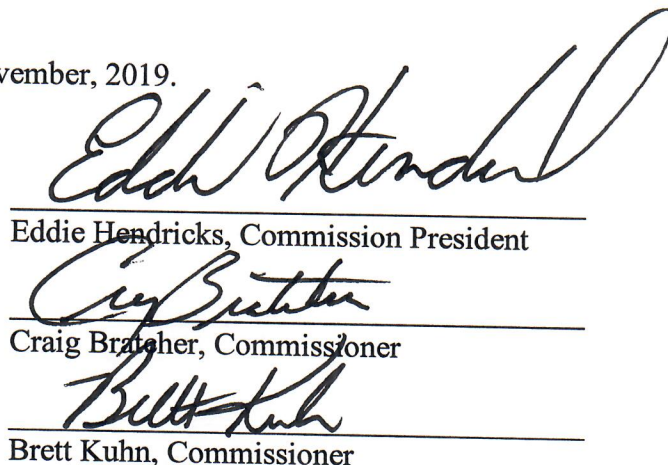 vember, 2019.
Eddie Hendricks, Commission President
Craig Bratcher, Commissioner
Brett Kuhn, Commissioner